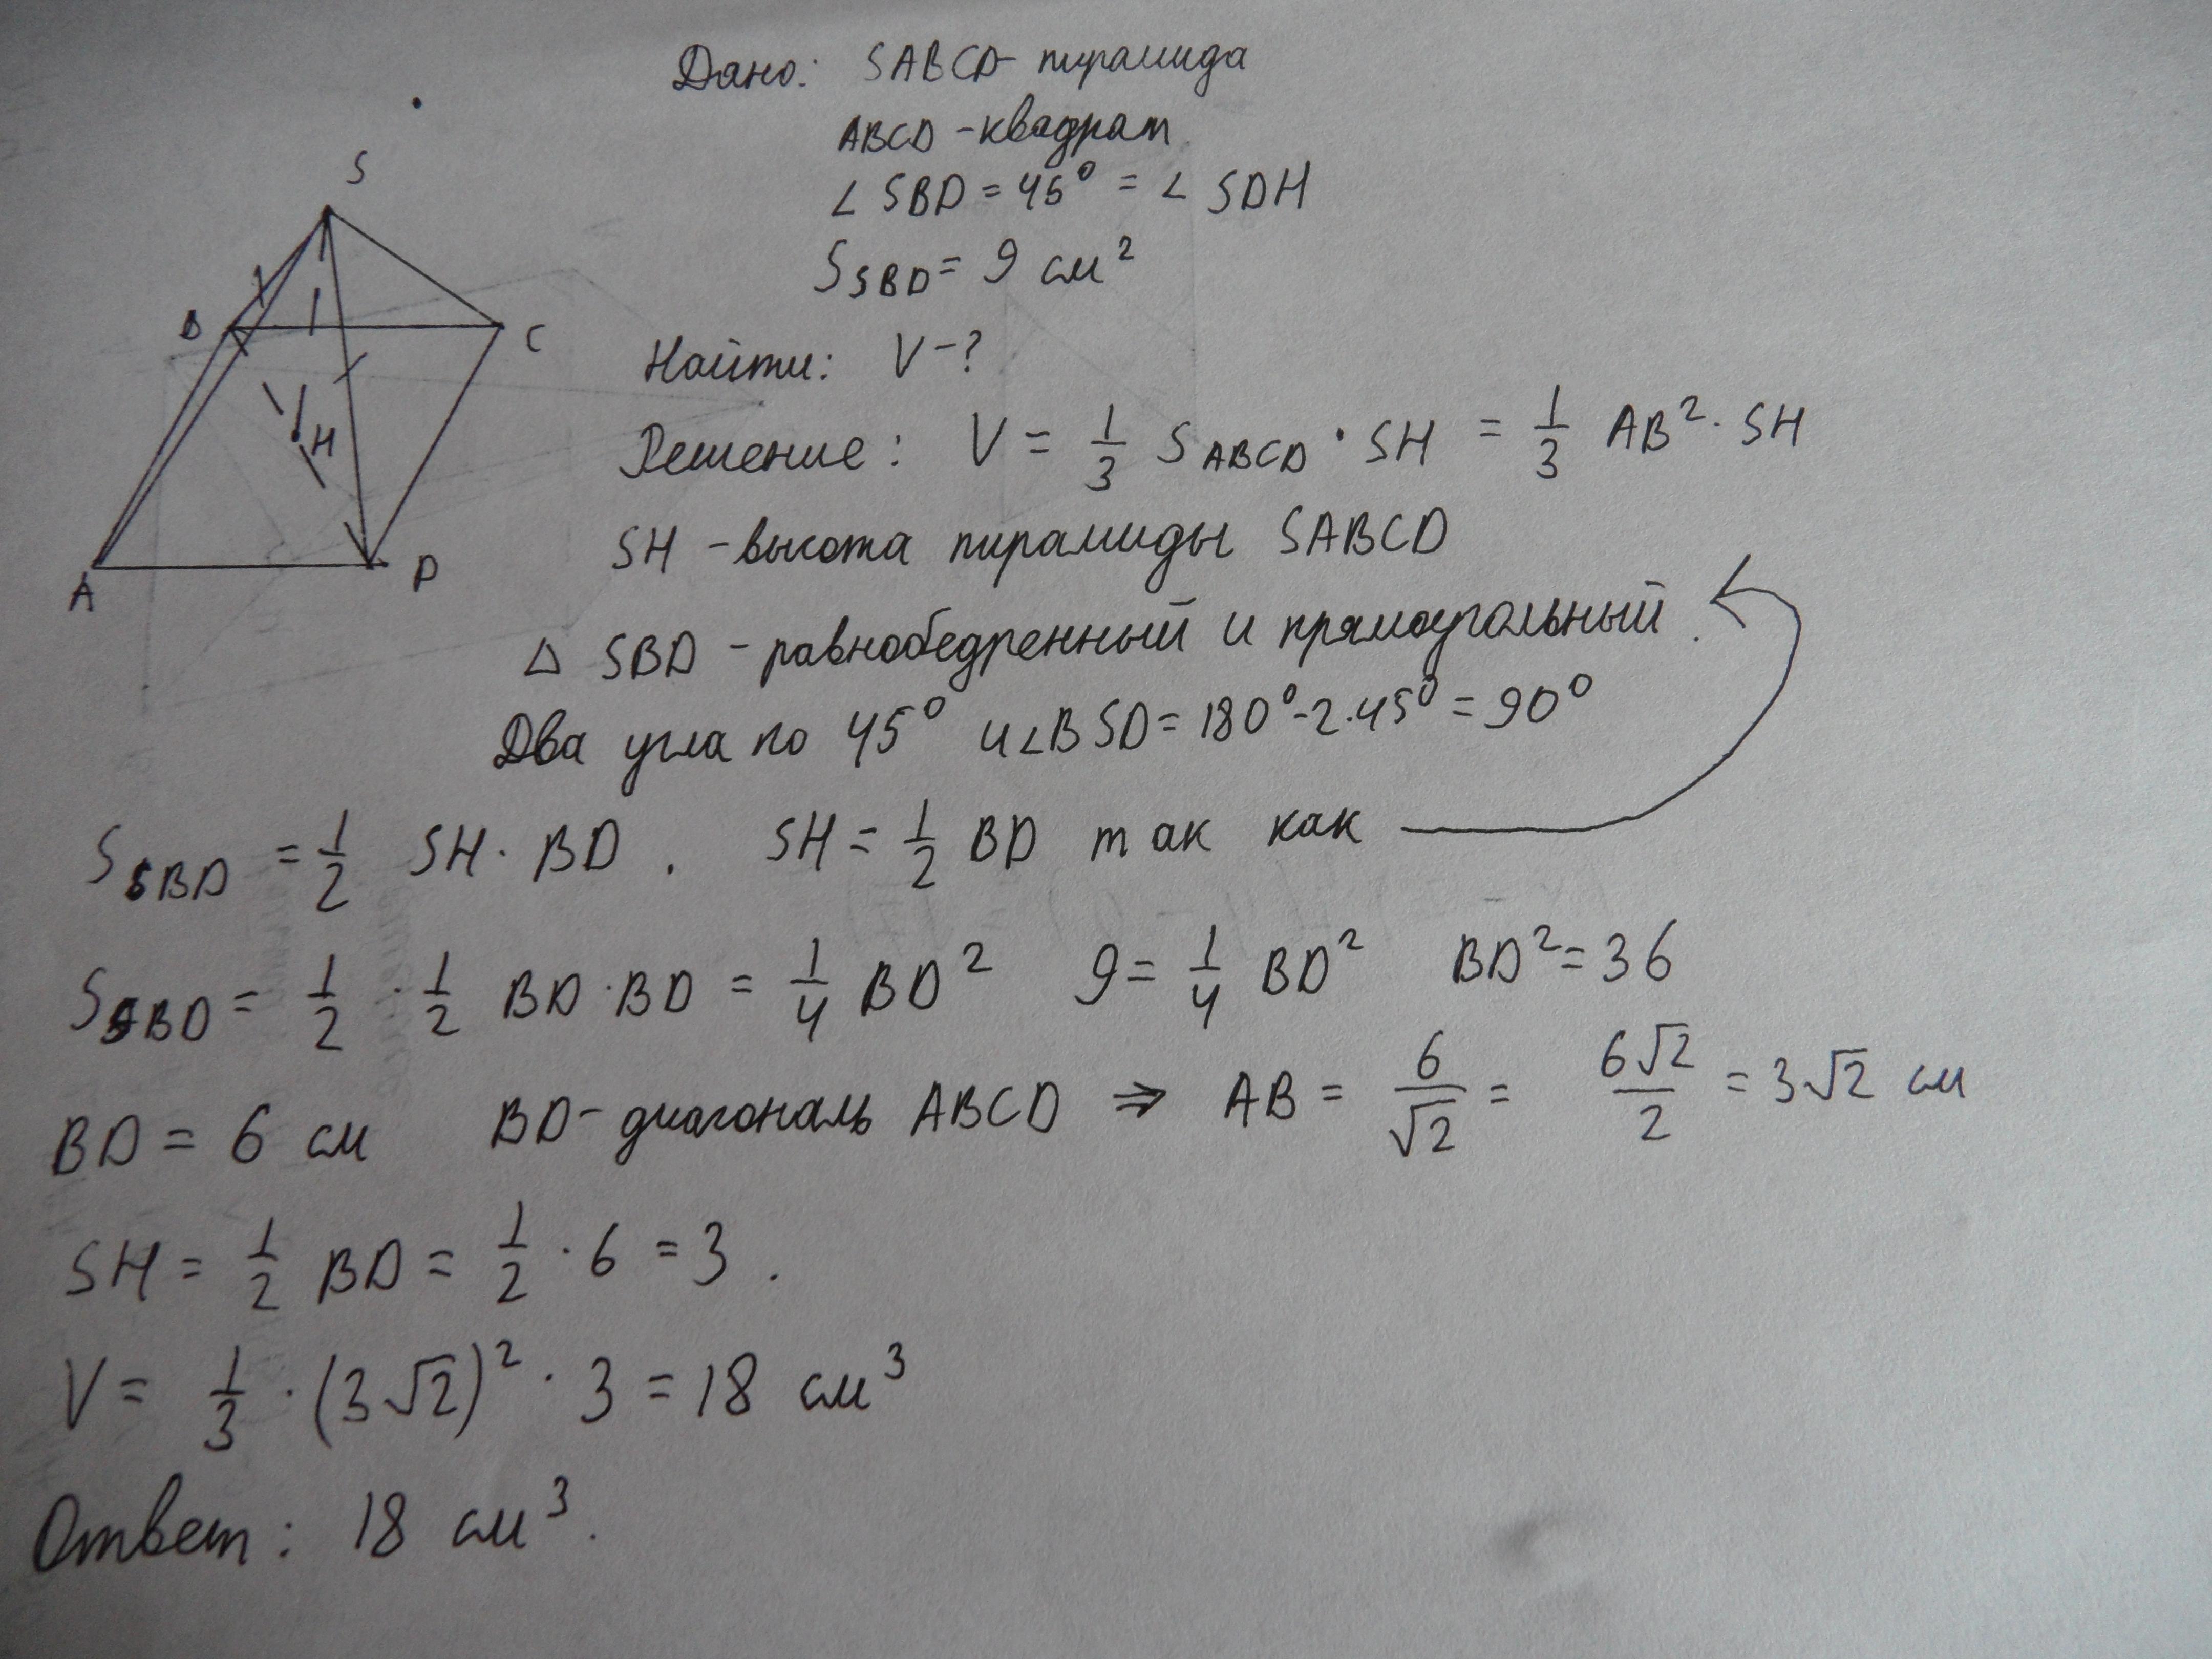 Дано: SABCD - пирамида
ABCD - квадрат
∠ SBD = 45° = ∠ SDH
S SBD = 9 см²
Найти: V - ?
Решение: V = 1/3 S ABCD · SH = 1/3 AB² · SH
SH - высота пирамиды SABCD
△ SBD - равнобедренный и прямоугольный.
Два угла по 45° и ∠BSD = 180° - 2·45° = 90°
S SBD = 1/2 SH · BD. SH = 1/2 BD так как
S SBD = 1/2 · 1/2 BD · BD = 1/4 BD² 9 = 1/4 BD² BD² = 36
BD = 6 см BD - диагональ ABCD ⇒ AB = 6/√2 = 6√2/2 = 3√2 см
SH = 1/2 BD = 1/2 · 6 = 3.
V = 1/3 · (3√2)² · 3 = 18 см³
Ответ: 18 см³.
S
B
C
H
A
D